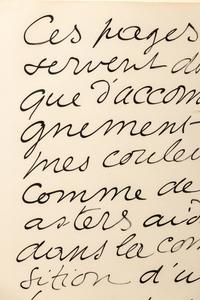 Ces pages
servent d
que d'accom
gnement
mes coule
comme de
asters aid
dans la com
sition d'u